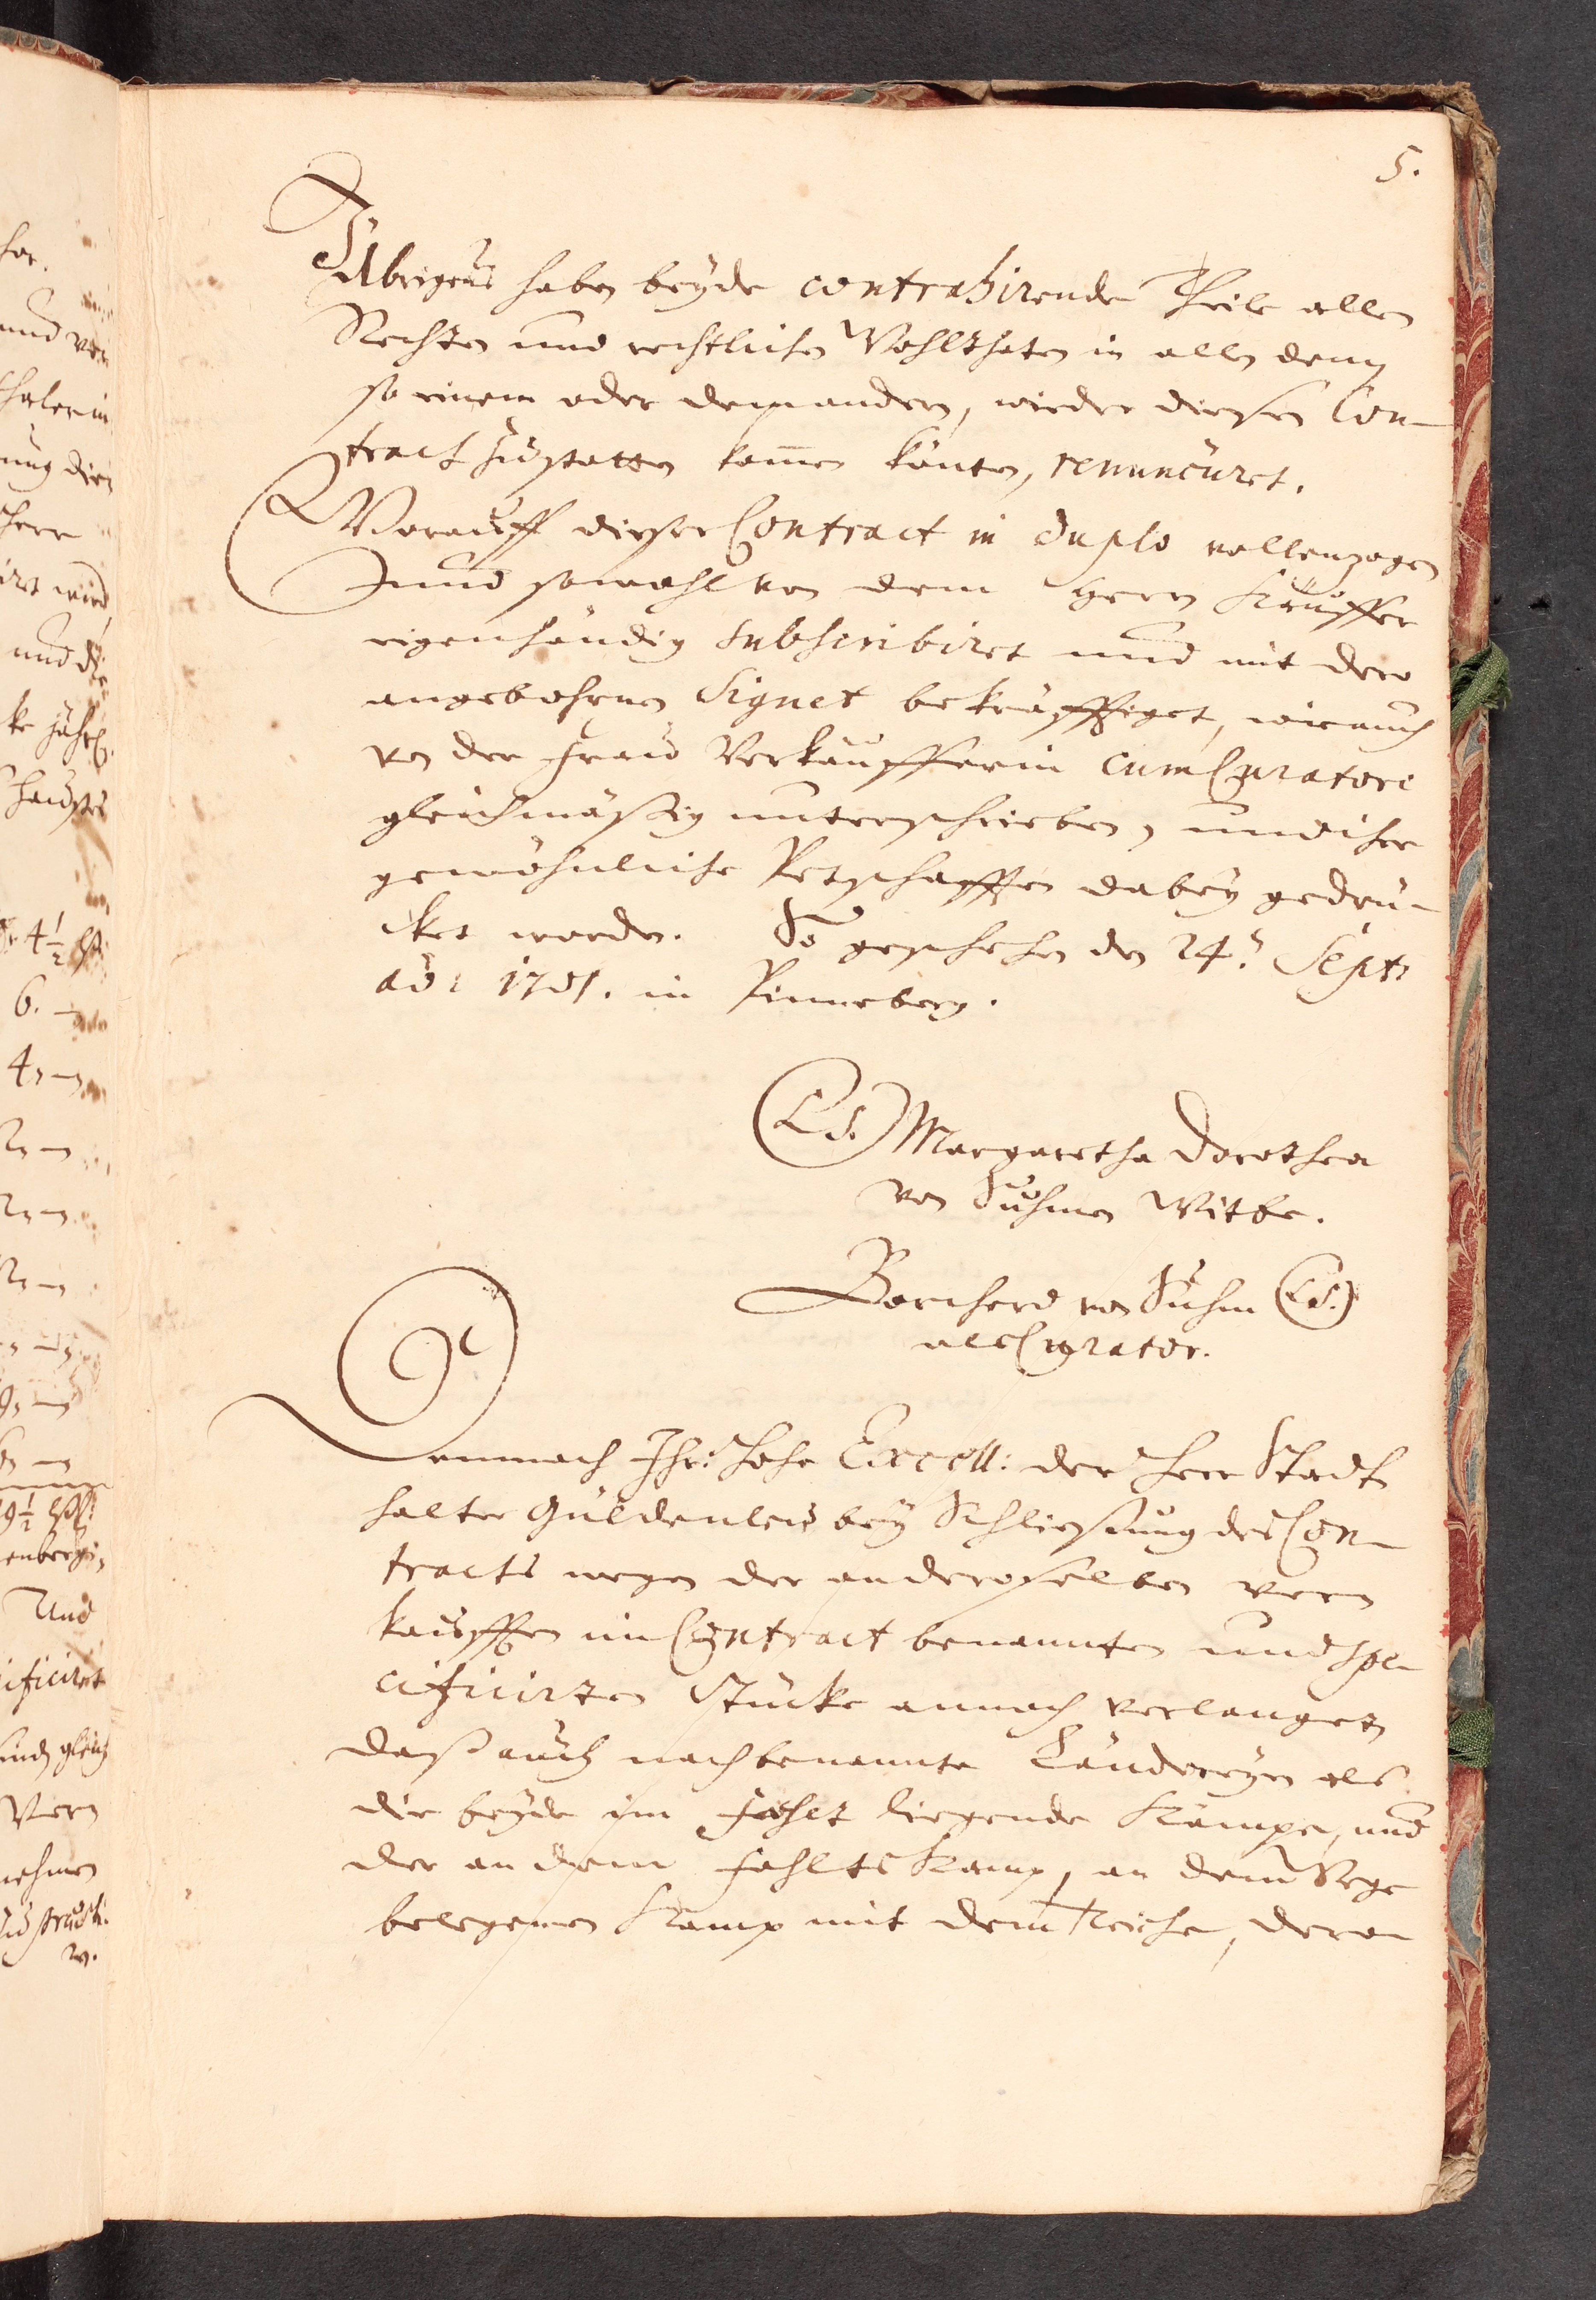 5.
Übrigens haben beyde contrahirende Theile allen
Rechten und rechtlichen Wohlthaten in allen dem
so einem oder dem andern, wieder diesen Con-
tract zustatten kom̅en könten, renunciiret.
Worauff dieser Contract in duplo vollenzogen
und sowohl von dem Herrn Käuffer
eigenhändig subscribiret und mit dero
angebohrnen Signet bekräfftiget, wie auch
von der Frau Verkäufferin cum Curatore
gleichmäßig unterschrieben, und ihre
gewöhnliche Petschafften dabey gedrü-
cket worden. So geschehen den 24. Sept:
ao: 1701. in Pinneberg.
(LS.) Margaretha Dorothea
von Suhmen Witbe.
Borcherd von Suhm (LS.)
als Curator.
Demnach Ihr: hohe Excell: der Herr Stadt
halter Güldenleu bey Schliessung des Con-
tracts wegen der an deroselben ver
kaufften im Contract benannten und spe-
cificirten Stücke annoch verlanget,
daß auch nachbenannte Ländereyen als
die beyde im Fahlt liegende Kämpe, und
der an dem Fahlts Kamp, an dem Wege
belegenen Kamp mit dem Teiche, dero